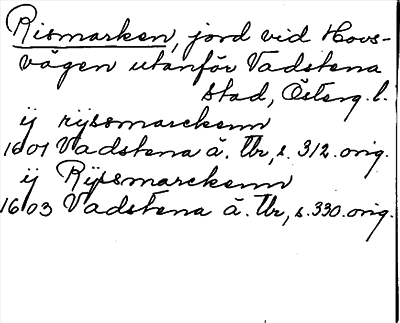 Rismarken, jord vid Hovs-
vägen utanför Vadstena
stad, Österg. l.
ij rijssmarckenn
1601 Vadstena ä. Tb, s. 312. orig.
ij Rijssmarckenn
1603 Vadstena ä. Tb, s. 330. orig.